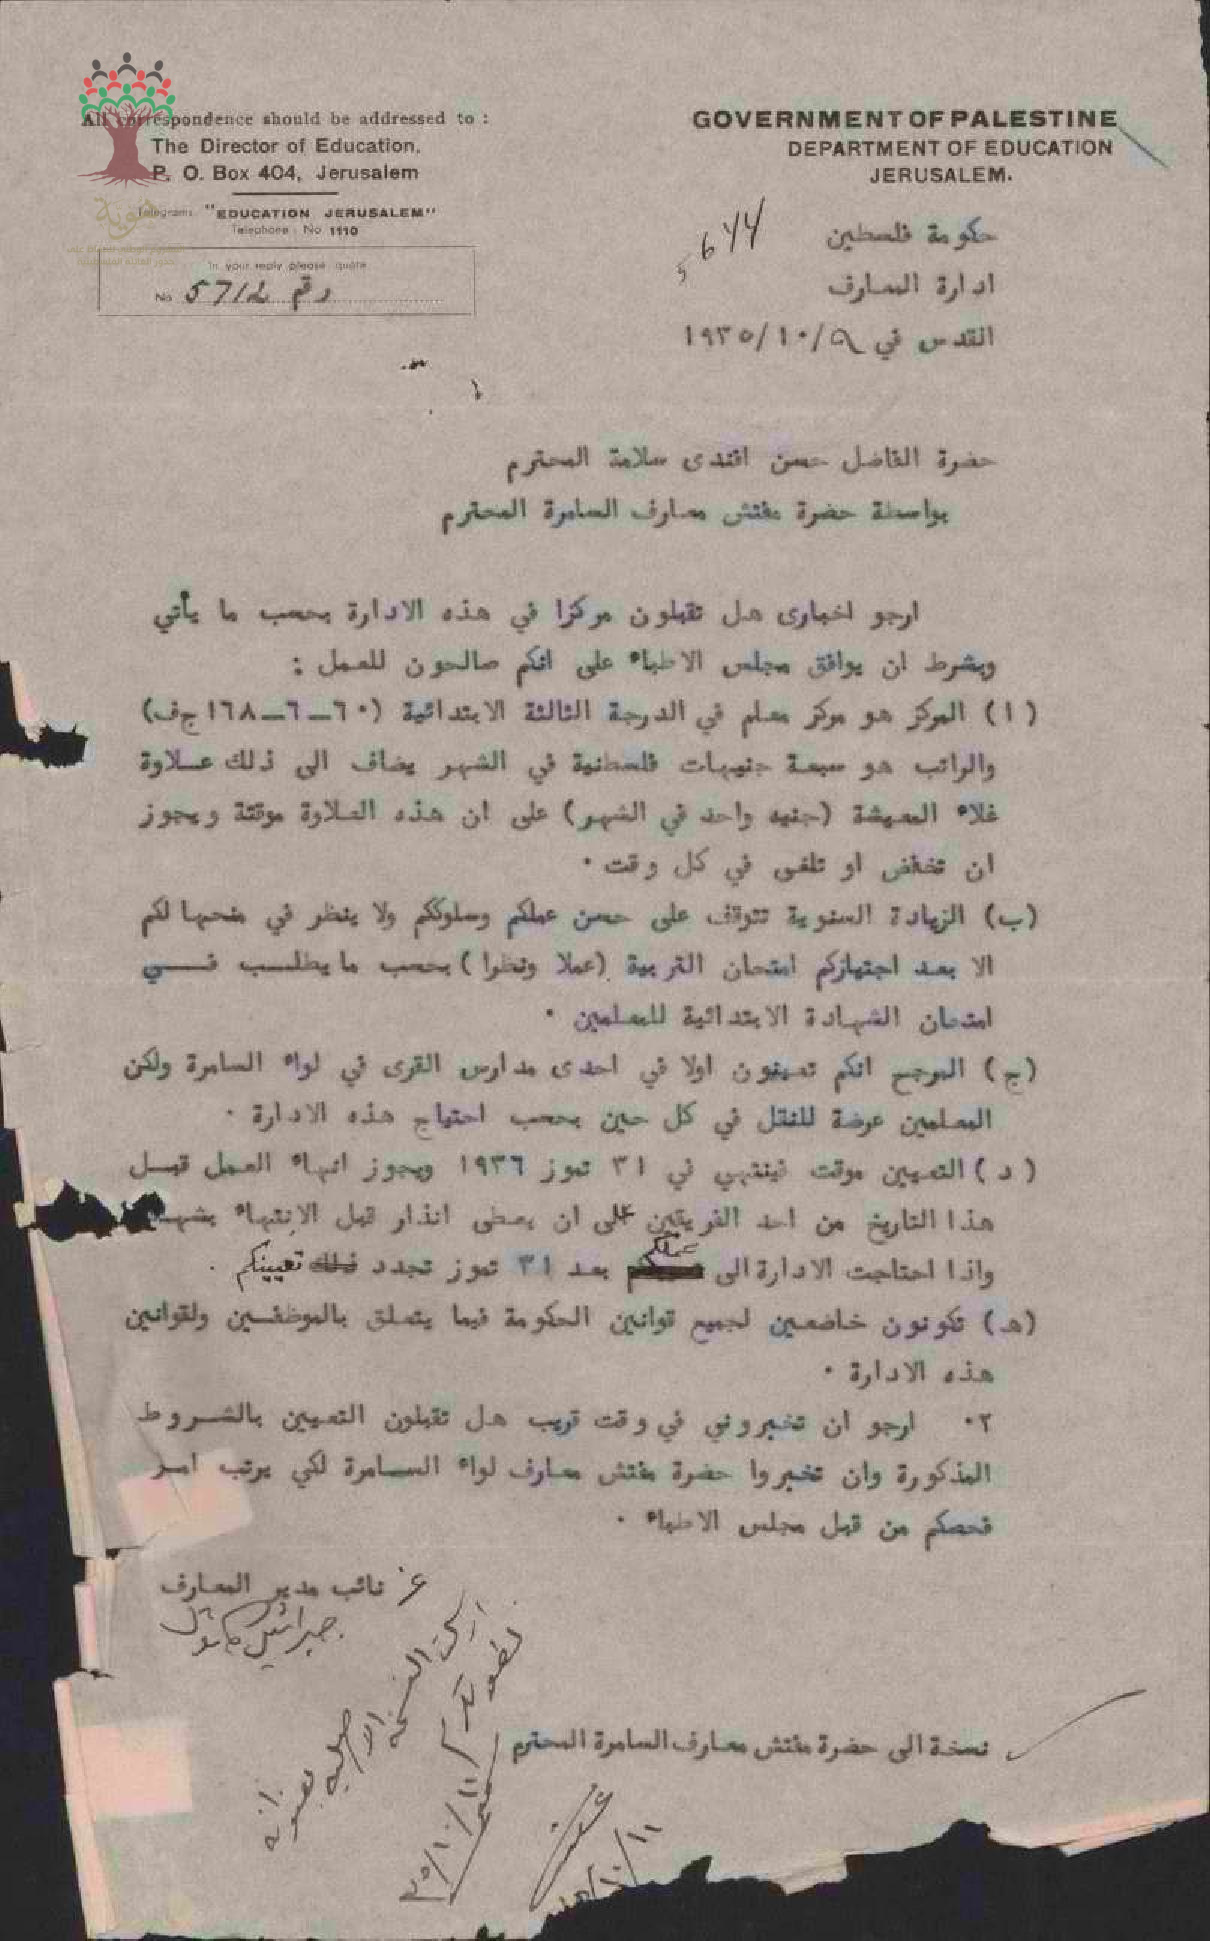 All correspondence should be addressed to :
The Director of Education,
P. O. Box 404, Jerusalem
Telegrams: "EDUCATION JERUSALEM"
Telephone : No 1110
In your reply please quote
No 571 رقم
هوية
GOVERNMENT OF PALESTINE
DEPARTMENT OF EDUCATION
JERUSALEM.
حكومة فلسطين
ادارة المعارف
القدس في ٩/١٠/١٩٣٥
حضرة الفاضل حسن افندى سلامة المحترم
بواسطة حضرة مفتش معارف السامرة المحترم
ارجو اخبارى هل تقبلون مركزا في هذه الادارة بحسب ما يأتي
وبشرط ان يوافق مجلس الاطباء على انكم صالحون للعمل :
(ا) المركز هو مركز معلم في الدرجة الثالثة الابتدائية (٦٠-٦-١٦٨ ج٠ف)
والراتب هو سبعة جنيهات فلسطنية في الشهر يضاف الى ذلك علاوة
غلاء المعيشة (جنيه واحد في الشهر) على ان هذه العلاوة موقتة ويجوز
ان تخفض او تلغى في كل وقت ٠
(ب) الزيادة السنوية تتوقف على حسن عملكم وسلوككم ولا ينظر في منحها لكم
الا بعد اجتيازكم امتحان التربية (عملا ونظرا) بحسب ما يطلب في
امتحان الشهادة الابتدائية للمعلمين ٠
(ج) المرجح انكم تعينون اولا في احدى مدارس القرى في لواء السامرة ولكن
المعلمين عرضة للنقل في كل حين بحسب احتياج هذه الادارة ٠
(د) التعيين موقت فينتهي في ٣١ تموز ١٩٣٦ ويجوز انهاء العمل قبل
هذا التاريخ من احد الفريقين على ان يعطى انذار قبل الانتهاء بشهر
واذا احتاجت الادارة الى عملكم بعد ٣١ تموز تجدد ذلك تعيينكم ٠
(هـ) تكونون خاضعين لجميع قوانين الحكومة فيما يتعلق بالموظفين ولقوانين
هذه الادارة ٠
٢٠ ارجو ان تخبروني في وقت قريب هل تقبلون التعيين بالشروط
المذكورة وان تخبروا حضرة مفتش معارف لواء السامرة لكي يرتب امر
فحصكم من قبل مجلس الاطباء ٠
ع٠ نائب مدير المعارف
جبرائيل كاتول
نسخة الى حضرة مفتش معارف السامرة المحترم